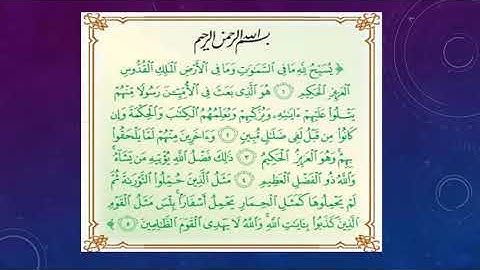 بسم الله الرحمن الرحيم
﴿ يُسَبِّحُ لِلَّهِ مَا فِى السَّمَٰوَٰتِ وَمَا فِى الْأَرْضِ الْمَلِكِ الْقُدُّوسِ
الْعَزِيزِ الْحَكِيمِ ١ هُوَ الَّذِى بَعَثَ فِى الْأُمِّيِّنَ رَسُولًا مِّنْهُمْ
يَتْلُوا۟ عَلَيْهِمْ ءَايَٰتِهِۦ وَيُزَكِّيهِمْ وَيُعَلِّمُهُمُ الْكِتَٰبَ وَالْحِكْمَةَ وَإِن
كَانُوا۟ مِن قَبْلُ لَفِى ضَلَٰلٍ مُّبِينٍ ٢ وَءَاخَرِينَ مِنْهُمْ لَمَّا يَلْحَقُوا۟
بِهِمْ وَهُوَ الْعَزِيزُ الْحَكِيمُ ٣ ذَٰلِكَ فَضْلُ اللَّهِ يُؤْتِيهِ مَن يَشَآءُ
وَاللَّهُ ذُو الْفَضْلِ الْعَظِيمِ ٤ مَثَلُ الَّذِينَ حُمِّلُوا۟ التَّوْرَىٰةَ ثُمَّ
لَمْ يَحْمِلُوهَا كَمَثَلِ الْحِمَارِ يَحْمِلُ أَسْفَارًۢا بِئْسَ مَثَلُ الْقَوْمِ
الَّذِينَ كَذَّبُوا۟ بِـَٔايَٰتِ اللَّهِ وَاللَّهُ لَا يَهْدِى الْقَوْمَ الظَّٰلِمِينَ ٥ ﴾